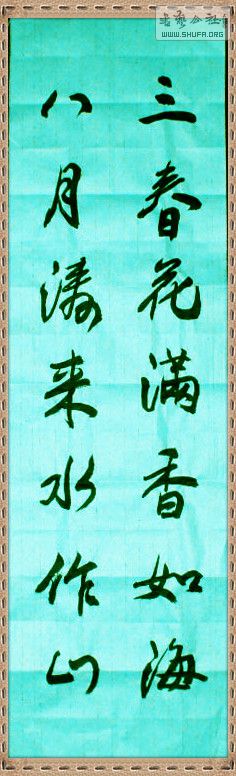 三春花满香如海
八月涛来水作山
书艺公社
WWW.SHUFA.ORG